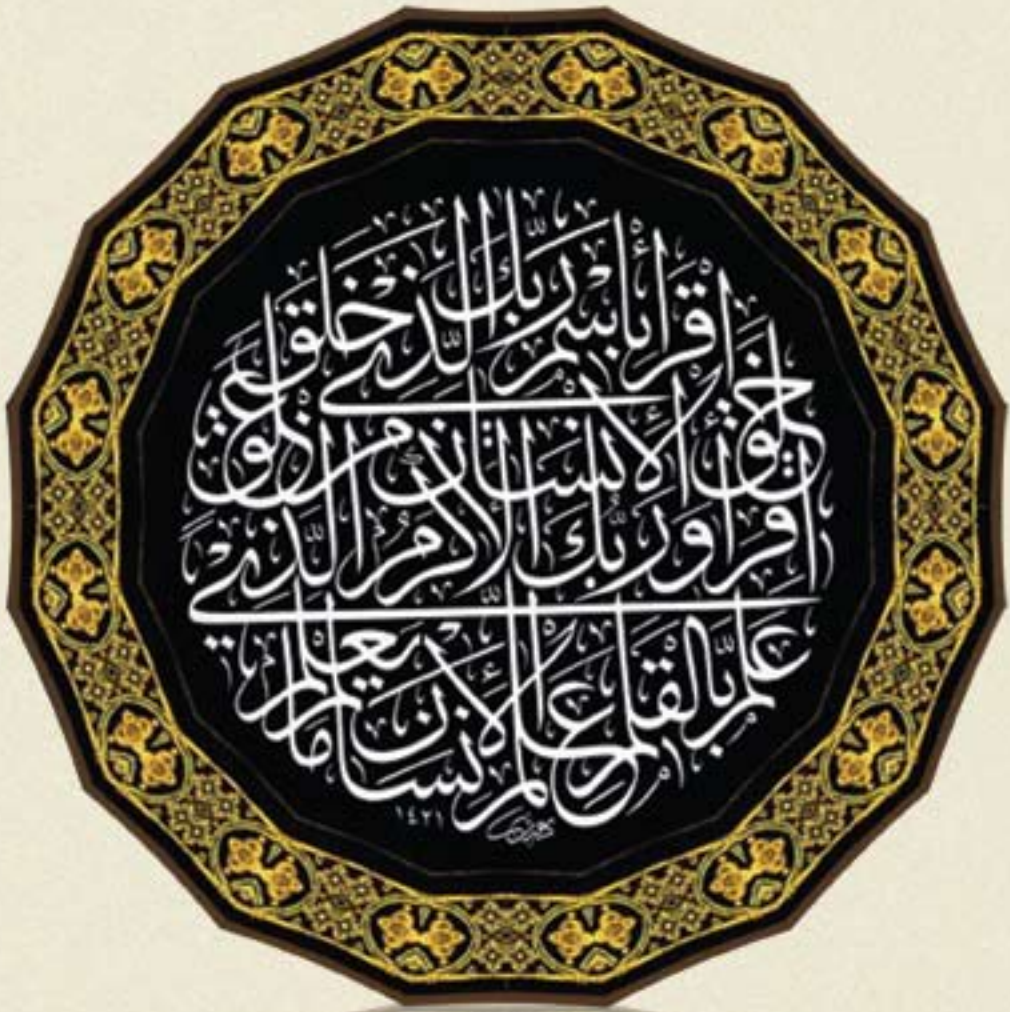 اقْرَأْ بِاسْمِ رَبِّكَ الَّذِي خَلَقَ
خَلَقَ الْإِنْسَانَ مِنْ عَلَقٍ
اقْرَأْ وَرَبُّكَ الْأَكْرَمُ الَّذِي
عَلَّمَ بِالْقَلَمِ عَلَّمَ الْإِنْسَانَ مَا لَمْ يَعْلَمْ
١٤٣١